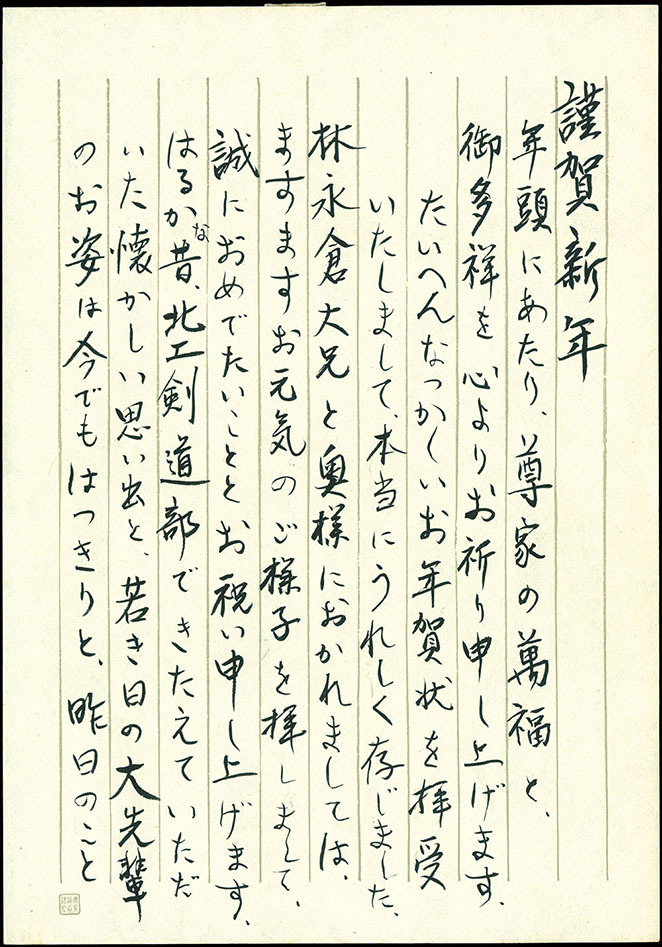 謹賀新年
年頭にあたり、尊家の萬福と、
御多祥を心よりお祈り申し上げます。
たいへんなつかしいお年賀状を拝受
いたしまして、本当にうれしく存じました。
林永倉大兄と奥様におかれましては、
ますますお元気のご様子を拝しまして、
誠におめでたいこととお祝い申し上げます。
はるかな昔、北工剣道部できたえていただ
いた懐かしい思い出と、若き日の大先輩
のお姿は今でもはっきりと、昨日のこと